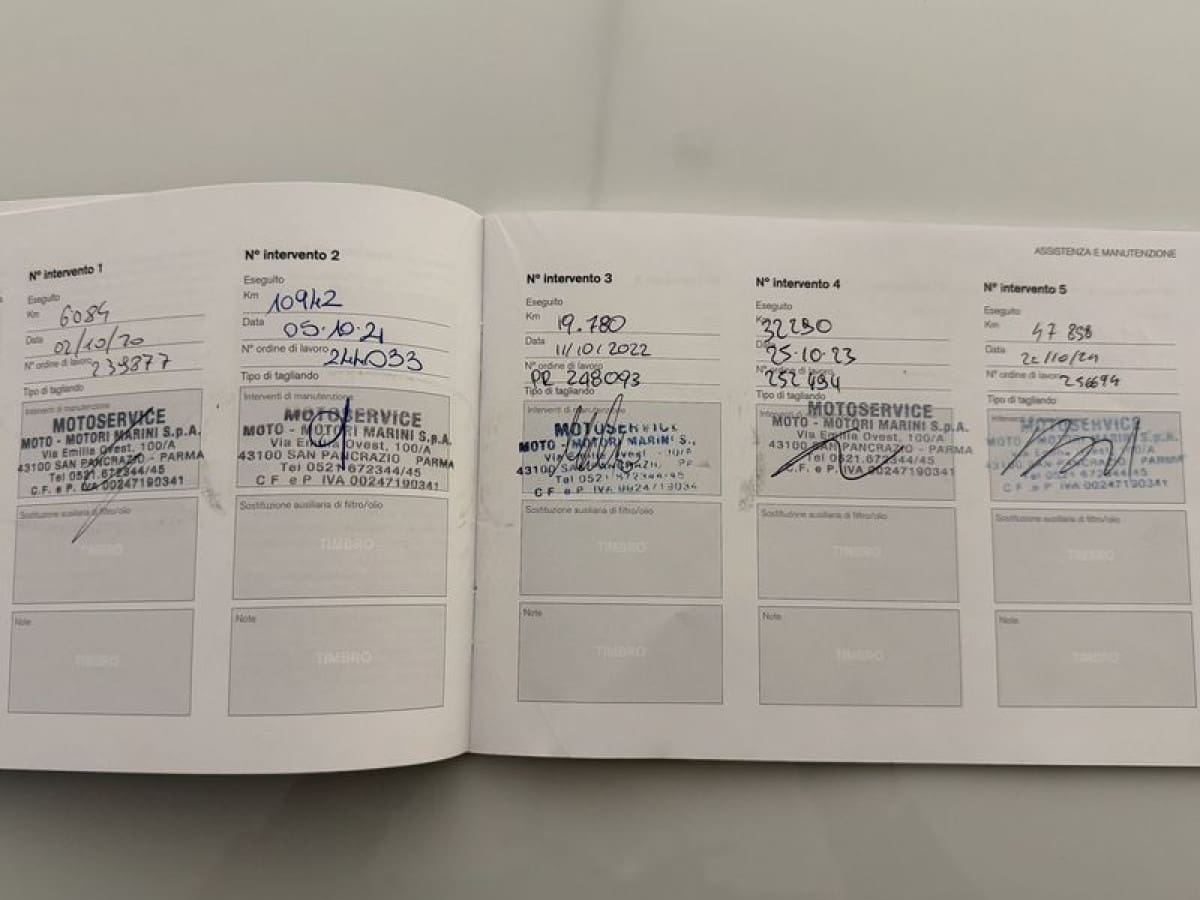 Nº intervento 1
Eseguito
Km 6084
Data 02/10/20
Nº ordine di lavoro 239877
Tipo di tagliando
Interventi di manutenzione
MOTOSERVICE
MOTO - MOTORI MARINI S.p.A.
Via Emilia Ovest, 100/A
43100 SAN PANCRAZIO - PARMA
Tel 0521.672344/45
C.F. e P. IVA 00247190341
Sostituzione ausiliaria di filtro/olio
TIMBRO
Note
TIMBRO
Nº intervento 2
Eseguito
Km 10942
Data 05.10.21
Nº ordine di lavoro 244033
Tipo di tagliando
Interventi di manutenzione
MOTOSERVICE
MOTO - MOTORI MARINI S.p.A.
Via Emilia Ovest, 100/A
43100 SAN PANCRAZIO PARMA
Tel 0521 672344/45
C F e P IVA 00247190341
Sostituzione ausiliaria di filtro/olio
TIMBRO
Note
TIMBRO
ASSISTENZA E MANUTENZIONE
Nº intervento 3
Eseguito
Km 19.780
Data 11/10/2022
Nº ordine di lavoro
PR 248093
Tipo di tagliando
Interventi di
MOTOSERVICE
MOTO - MOTORI MARINI S.
43100 SAN PANCRAZIO
Tel 0521 672344/45
C F e P IVA
Sostituzione ausiliaria di filtro/olio
TIMBRO
Note
TIMBRO
Nº intervento 4
Eseguito
32290
25.10.23
Nº ordine di lavoro
252494
Tipo di tagliando
MOTOSERVICE
MOTO - MOTORI MARINI S.p.A.
Via Emilia Ovest, 100/A
43100 SAN PANCRAZIO - PARMA
Tel 0521.672344/45
C.F. e P. IVA 00247190341
Sostituzione ausiliaria di filtro/olio
TIMBRO
Note
TIMBRO
Nº intervento 5
Eseguito
Km 47 858
Data
Nº ordine di lavoro 256694
Tipo di tagliando
MOTOSERVICE
MOTO - MOTORI MARINI S.p.A.
PARMA
Tel 0521 672344/45
C F e P IVA 00247190341
Sostituzione ausiliaria di filtro/olio
TIMBRO
Note
TIMBRO